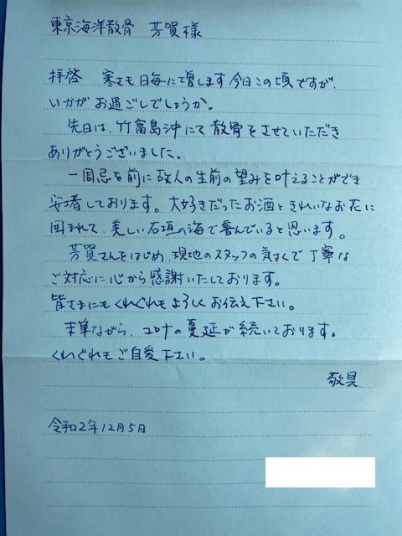 東京海洋散骨 芳賀様
拝啓 寒さも日毎に増します今日この頃ですが、
いかがお過ごしでしょうか。
先日は、竹富島沖にて散骨をさせていただき
ありがとうございました。
一周忌を前に故人の生前の望みを叶えることができ
安堵しております。大好きだったお酒ときれいなお花に
囲まれて、美しい石垣の海で喜んでいると思います。
芳賀さんをはじめ、現地のスタッフの気さくで丁寧な
ご対応に心から感謝いたしております。
皆さまにもくれぐれもよろしくお伝え下さい。
末筆ながら、コロナの蔓延が続いております。
くれぐれもご自愛下さい。
敬具
令和2年12月5日